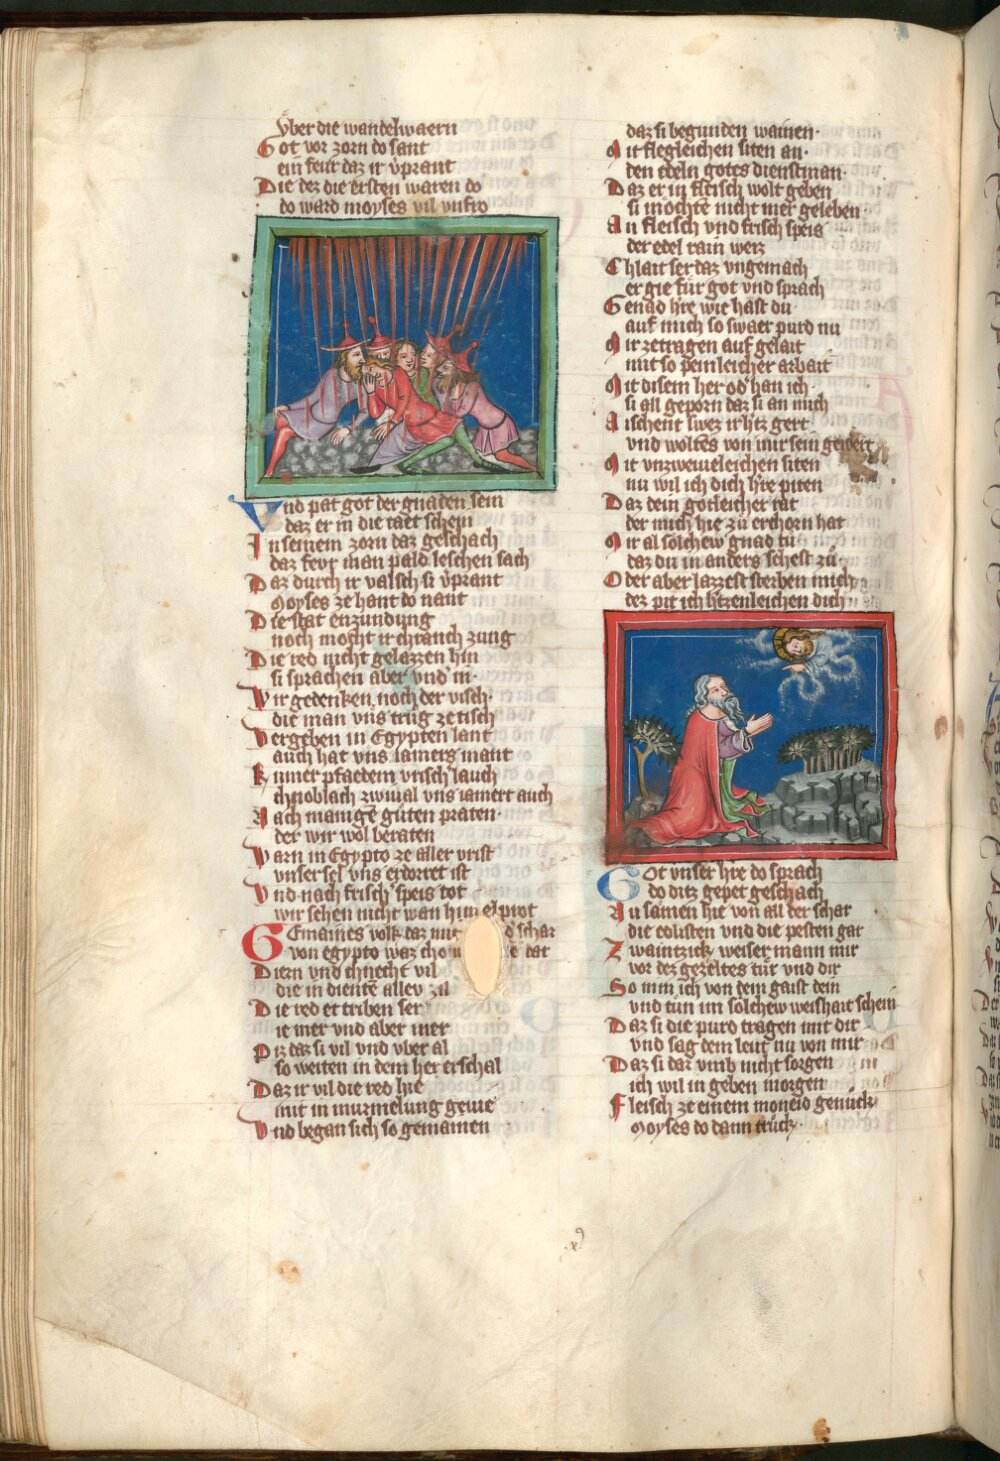 v̈ber die wandelwaern
Got vor zorn do sant
ein feur daz ir v̈prant
Die dez die ersten waren do
do ward moyses vil vnfro
Vnd pat got der gnaden sein
daz er in die taet schein
In seinem zorn daz geschach
daz fevr man pald leschen sach
Daz durch ir valsch si v̈prant
Moyses ze hant do nant
Die stat enzundung
noch mocht ir chranch zung
Die red nicht gelazzen hin
si sprachen aber vnd in
Wir gedenken noch der visch
die man vns trug ze tisch
Vergeben in Egypten lant
auch hat vns iamers mant
Kumer pfaedem vrisch lauch
chnoblach zwiual vns iamert auch
Nach manigē guten praten
der wir wol beraten
Warn in Egypto ze aller vrist
vnser sel vns erdorret ist
Vnd nach frisch speis tot
wir sehen nicht wan himelprot
Gemaines volk daz mit d schar
von egypto waz dar
Diern vnd chnecht vil
die in dienten allev zil
Die red er triben ser
ie mer vnd aber mer
Piz daz si vil vnd vber al
so weiten in dem her erschal
Daz ir vil die red hie
mit in murmelung gevie
Vnd began sich so gemainen
daz si begunden wainen
Mit flegleichen siten an
den edeln gotes dienstman
Daz er in fleisch wolt geben
si mochtē nicht mer geleben
An fleisch vnd frisch speis
der edel rain weis
Chlait ser daz vngemach
er gie fur got vnd sprach
Genad hre wie hast du
auf mich so swaer purd nu
Mir ze tragen auf gelait
mit so peinleicher arbait
Mit disem her od han ich
si all geporn daz si an mich
Aischent swez ir htz gert
vnd woltes von mir sein gewert
Mit vnzweiueleichen siten
nu wil ich dich hre piten
Daz dein gotleicher rat
der mich hie zu erchorn hat
Mir al solchew gnad tu
daz du in anders schelst zu
Oder aber lazzest sterben mich
dez pit ich htzenleichen dich
Got vnser hre do sprach
do ditz gepet geschach
Nu samen hie von all der schar
die eltisten vnd die pesten gar
Zwaintzick weiser mann mir
vor dez gezeltes tur vnd dir
So nim ich von dem gaist dein
vnd tun im solchew weishait schein
Daz si die purd tragen mit dir
vnd sag dem leut nu von mir
Daz si dar vmb nicht sorgen
ich wil in geben morgen
Fleisch ze einem moneid genuck
Moyses do dann truck